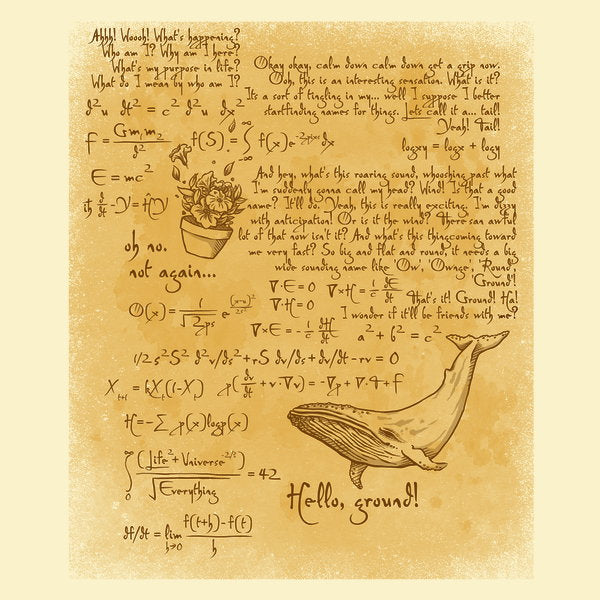 Ahhh! Woooh! What's happening?
Who am I? Why am I here?
What's my purpose in life?
What do I mean by who am I?
Okay okay, calm down calm down get a grip now.
Ooh, this is an interesting sensation. What is it?
Its a sort of tingling in my... well I suppose I better
startfinding names for things. Lets call it a... tail!
Yeah! Tail!
∂²u ∂t² = c² ∂²u ∂x²
f = Gm₁m₂ / d²
f(S) = ∫ f(x)e^-2pixs dx
logxy = logx + logy
E = mc²
iħ d/dt -Y = ĤY
And hey, what's this roaring sound, whooshing past what
I'm suddenly gonna call my head? Wind! Is that a good
name? It'll do. Yeah, this is really exciting. I'm dizzy
with anticipation! Or is it the wind? There san awful
lot of that now isn't it? And what's this thingcoming toward
me very fast? So big and flat and round, it needs a big
wide sounding name like 'Ow', 'Ownge', 'Round',
'Ground'!
That's it! Ground! Ha!
I wonder if it'll be friends with me?
oh no.
not again...
∇·E = 0 ∇×H = 1/c dE/dt
∇·H = 0
∇×E = -1/c dH/dt
a² + b² = c²
O(x) = 1/√2ps e^(x-u)²/2s²
1/2 s²S² d²v/ds² + rS dv/ds + dv/dt - rv = 0
Xₜ₊₁ = kXₜ(1-Xₜ)
p(dv/dt + v·∇v) = -∇p + ∇·T + f
H = -∑ p(x)logp(x)
∫₀ (Life² + Universe^-2/3) / √Everything = 42
Hello, ground!
df/dt = lim h→0 f(t+h)-f(t) / h